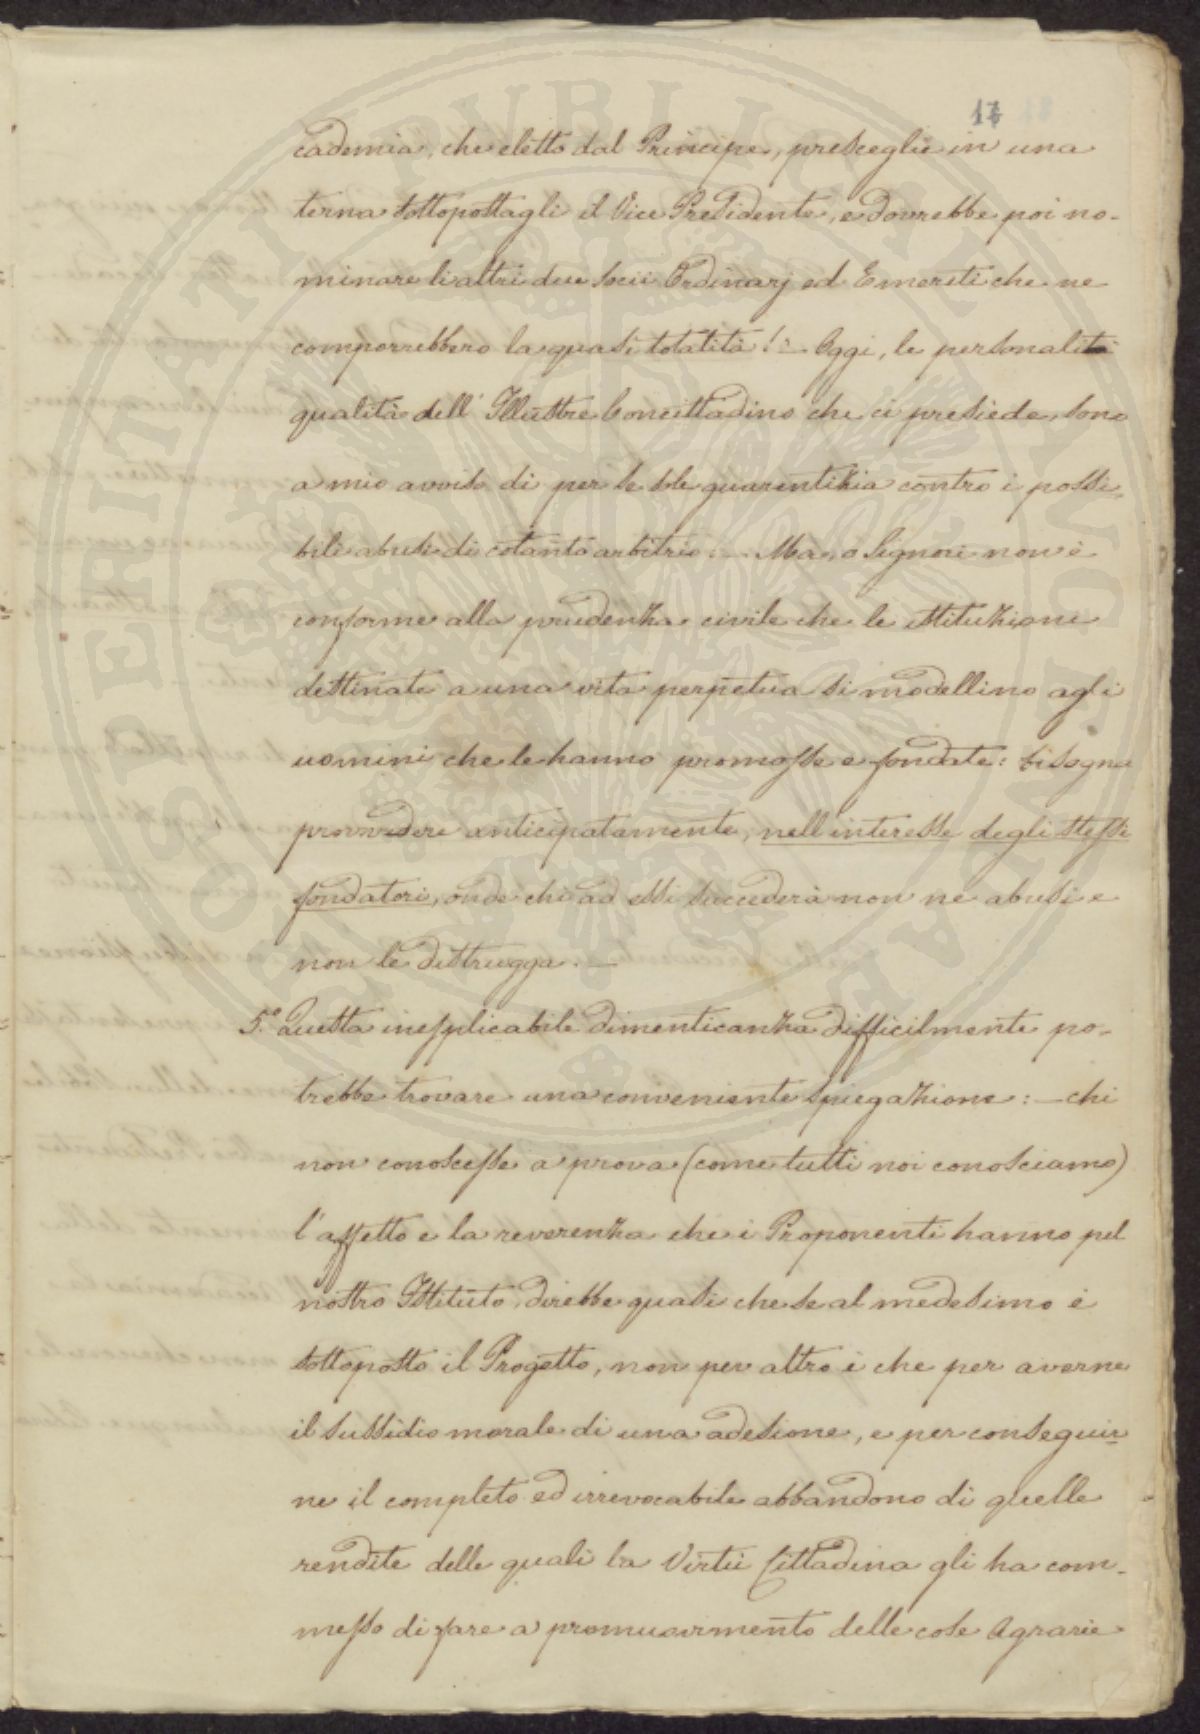 17
cademia, che eletto dal Principe, presceglie in una
terna sottopostagli il Vice Presidente, e dovrebbe poi no-
minare li altri due Socii Ordinarj ed Emeriti che ne
comporrebbero la quasi totalità!? — Oggi, le personali
qualità dell' Illustre Concittadino che ci presiede, sono
a mio avviso di per se sole guarentizia contro i possi-
bili abusi di cotanto arbitrio. — Ma, o Signori non è
conforme alla prudenza civile che le istituzioni
destinate a una vita perpetua si modellino agli
uomini che le hanno promosse e fondate: bisogna
provvedere anticipatamente, nell'interesse degli stessi
fondatori, onde chi ad essi succederà non ne abusi e
non le distrugga. —
5.° Questa inesplicabile dimenticanza difficilmente po-
trebbe trovare una conveniente spiegazione: — chi
non conoscesse a prova (come tutti noi conosciamo)
l'affetto e la reverenza che i Proponenti hanno pel
nostro Istituto, direbbe quasi che se al medesimo è
sottoposto il Progetto, non per altro è che per averne
il sussidio morale di una adesione, e per conseguir
ne il completo ed irrevocabile abbandono di quelle
rendite delle quali la Virtù Cittadina gli ha com-
messo di fare a promuovimento delle cose Agrarie
HOSPERITATI PVBLICAE AVGENDAE